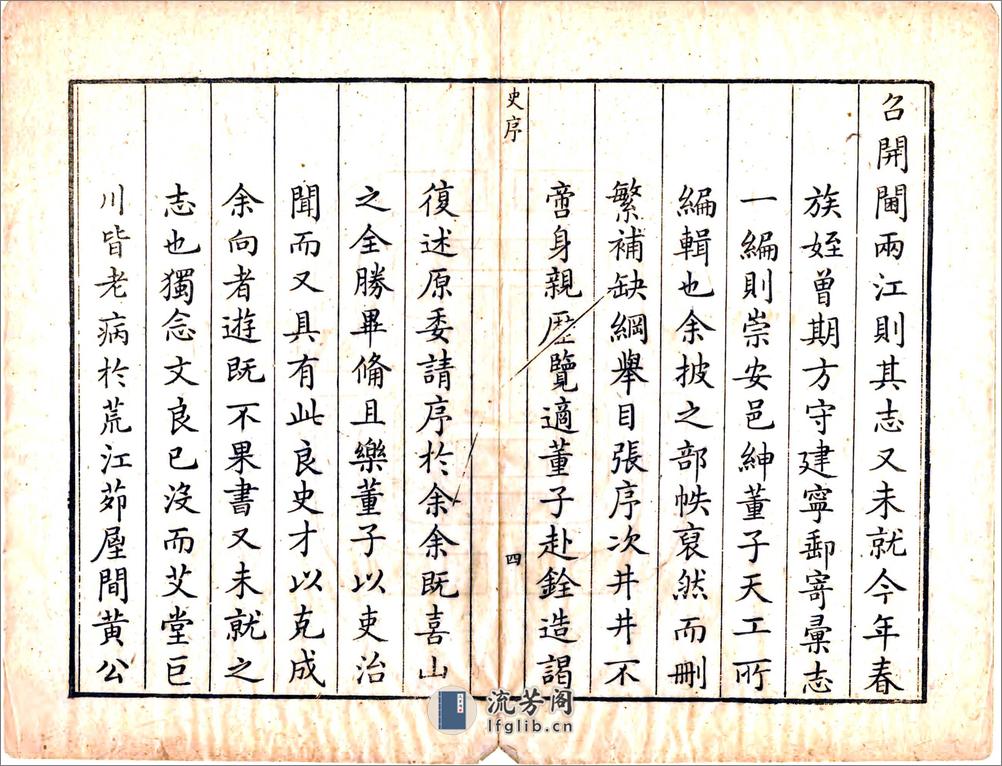 召開閩兩江則其志又未就今年春
族姪曾期方守建寧郵寄彙志
一編則崇安邑紳董子天工所
編輯也余披之部帙裒然而刪
繁補缺綱舉目張序次井井不
啻身親歷覽適董子赴銓造謁
史序
四
復述原委請序於余余既喜山
之全勝畢備且樂董子以吏治
聞而又具有此良史才以克成
余向者遊既不果書又未就之
志也獨念文良已沒而艾堂巨
川皆老病於荒江茆屋間黃公
流芳阁
lfglib.cn